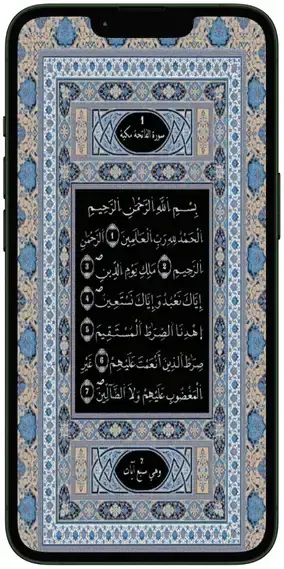 1
سورة الفاتحة مكية
بِسْمِ اللَّهِ الرَّحْمَٰنِ الرَّحِيمِ
الْحَمْدُ لِلَّهِ رَبِّ الْعَالَمِينَ ① الرَّحْمَٰنِ
الرَّحِيمِ ② مَالِكِ يَوْمِ الدِّينِ ③
إِيَّاكَ نَعْبُدُ وَإِيَّاكَ نَسْتَعِينُ ④
اِهْدِنَا الصِّرَاطَ الْمُسْتَقِيمَ ⑤
صِرَاطَ الَّذِينَ أَنْعَمْتَ عَلَيْهِمْ ⑥ غَيْرِ
الْمَغْضُوبِ عَلَيْهِمْ وَلَا الضَّالِّينَ ⑦
وهي سبع آيات